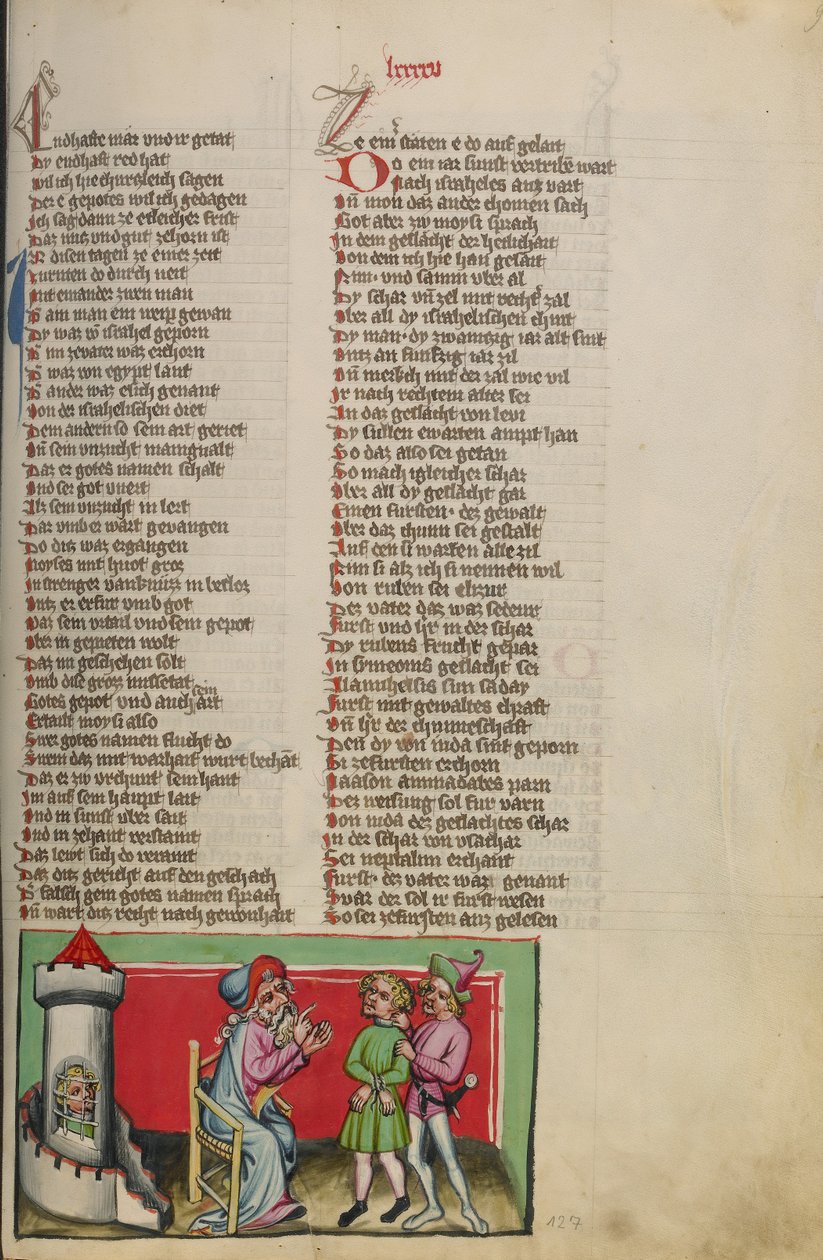 lxxxxv
Endhafte mär vnd ir getat
Dy endhaft red hat
wil ich hie churczleich sagen
Der e gepotes wil ich gedagen
Ich sag dann ze etleicher frist
Daz nucz vnd gut zehorn ist
disen tagen ze einer zeit
zurnten do durch neit
Mit einander zwen man
D̾ am man ein weip gewan
Dy waz võ israhel geporn
D̾ im zevater waz erchorn
D̾ waz von egypt lant
D̾ ander waz elich genant
Von der israhelischen diet
Dem andern so sein art geriet
Vñ sein vnzucht manigualt
Daz er gotes namen schalt
Vnd ser got vnert
Als sein vnzucht in lert
Dar vmb er wart gevangen
Do ditz waz ergangen
Moyses mit huot groz
In strenger vanknuzz in besloz
Vntz er erfur vmb got
Waz sein vrtail vnd sein gepot
Vber in gepieten wolt
Daz im geschehen solt
Vmb dise grozz missetat
Gotes gepot vnd auch sein art
Ertailt moysi also
Swer gotes namen flucht do
Swem daz mit warhait wurt bechãt
Daz er zw vrchunt sein hant
Im auf sein haupt lait
Vnd in sunst vber sait
Vnd in zehant verstaint
Daz lewt sich do veraint
Daz ditz gericht auf den geschach
D̾ falsch gein gotes namen sprach
Vñ wart ditz recht nach gewonhait
Ze einer stäten e do auf gelait
Do ein iar sunst vertribẽ wart
Nach israheles auz vart
Vñ mon daz ander chomen sach
Got aber zw moysi sprach
In dem geslächt der heilichait
Von dem ich hie han gesait
Nim vnd samm vber al
Dy schar vñ zel mit rechter zal
Vber all dy israhelischen chint
Dy man dy zwainczig iar alt sint
Vntz an funfzig iar zil
Vñ merkch mit der zal wie vil
Ir nach rechtem alter sei
An daz geslächt von levi
Dy sullen ewarten ampt han
So daz also sei getan
So mach igleicher schar
Vber all dy geslächt gar
Einen fursten dez gewalt
Vber daz chunn sei gestalt
Auf den si warten alle zil
Nim si alz ich si nennen wil
Von ruben sei elizur
Dez vater daz waz sedeur
Furst vnd h̾r in der schar
Dy rubens frucht gepar
In symeons geslächt sei
furst mit gewaltes chraft
Vñ h̾r der chunneschaft
Den dy von iuda sint geporn
Si zefursten erchorn
Naason aminadabes parn
Dez weisung sol fur varn
Von iuda dez geslachtes schar
In der schar von ysachar
Sei neptalim erchant
Furst dez vater waz genant
Svar der sol ir furst wesen
So sei zefursten auz gelesen
127